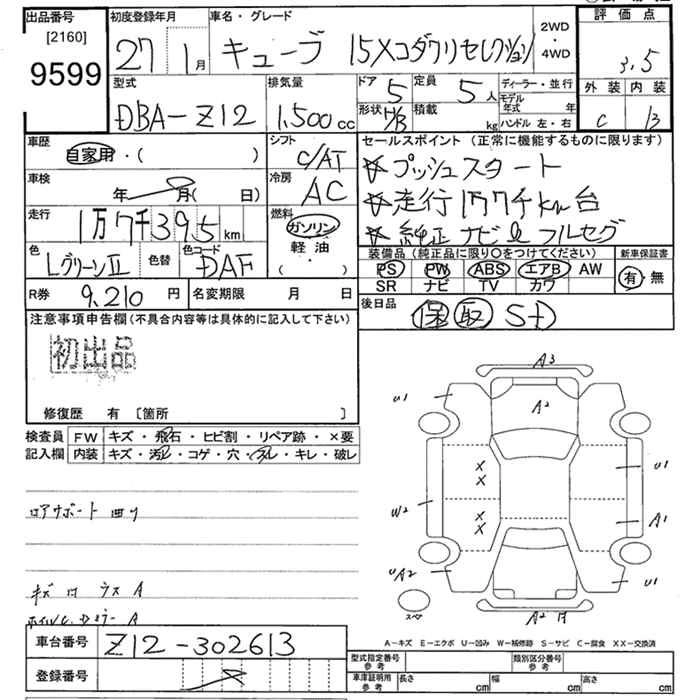 出品番号 初度登録年月 車名・グレード 2WD・4WD 評価点
[2160]
9599
27 1月 キューブ 15Xコダワリセレクション 3.5
型式 排気量 ドア 5 定員 5人 ディーラー・並行 外装 内装
DBA-Z12 1,500cc 形状 H/B 積載 kg モデル年式 年 ハンドル 左・右 C B
車歴 シフト セールスポイント (正常に機能するものに限ります)
自家用・( ) C/AT ☆プッシュスタート
車検 冷房
年 月( 日) AC ☆走行1万7千km台
走行 燃料
1万7千395km ガソリン ☆純正ナビ&フルセグ
色 色替 色コード 軽油・( ) 装備品 (純正品に限り○をつけてください) 新車保証書
LグリーンⅡ DAF PS PW ABS エアB AW 有・無
SR ナビ TV カワ
R券 9,210円 名変期限 月 日 後日品 保 取 S+
注意事項申告欄(不具合内容等は具体的に記入して下さい)
初出品
修復歴 有 〔箇所 〕
検査員 FW キズ・飛石・ヒビ割・リペア跡・×要
記入欄 内装 キズ・汚レ・コゲ・穴・スレ・キレ・破レ
A3
U1
A2
X
X
U1
W2
X
X
A1
UA2
U1
スペア
A2
ロアサポート凹リ
キズ
ス A
A
A-キズ E-エクボ U-凹み W-補修跡 S-サビ C-腐食 XX-交換済
車台番号 Z12-302613
登録番号
型式指定番号 参考 類別区分番号 参考
車庫証明用 参考 長さ cm 幅 cm 高さ cm